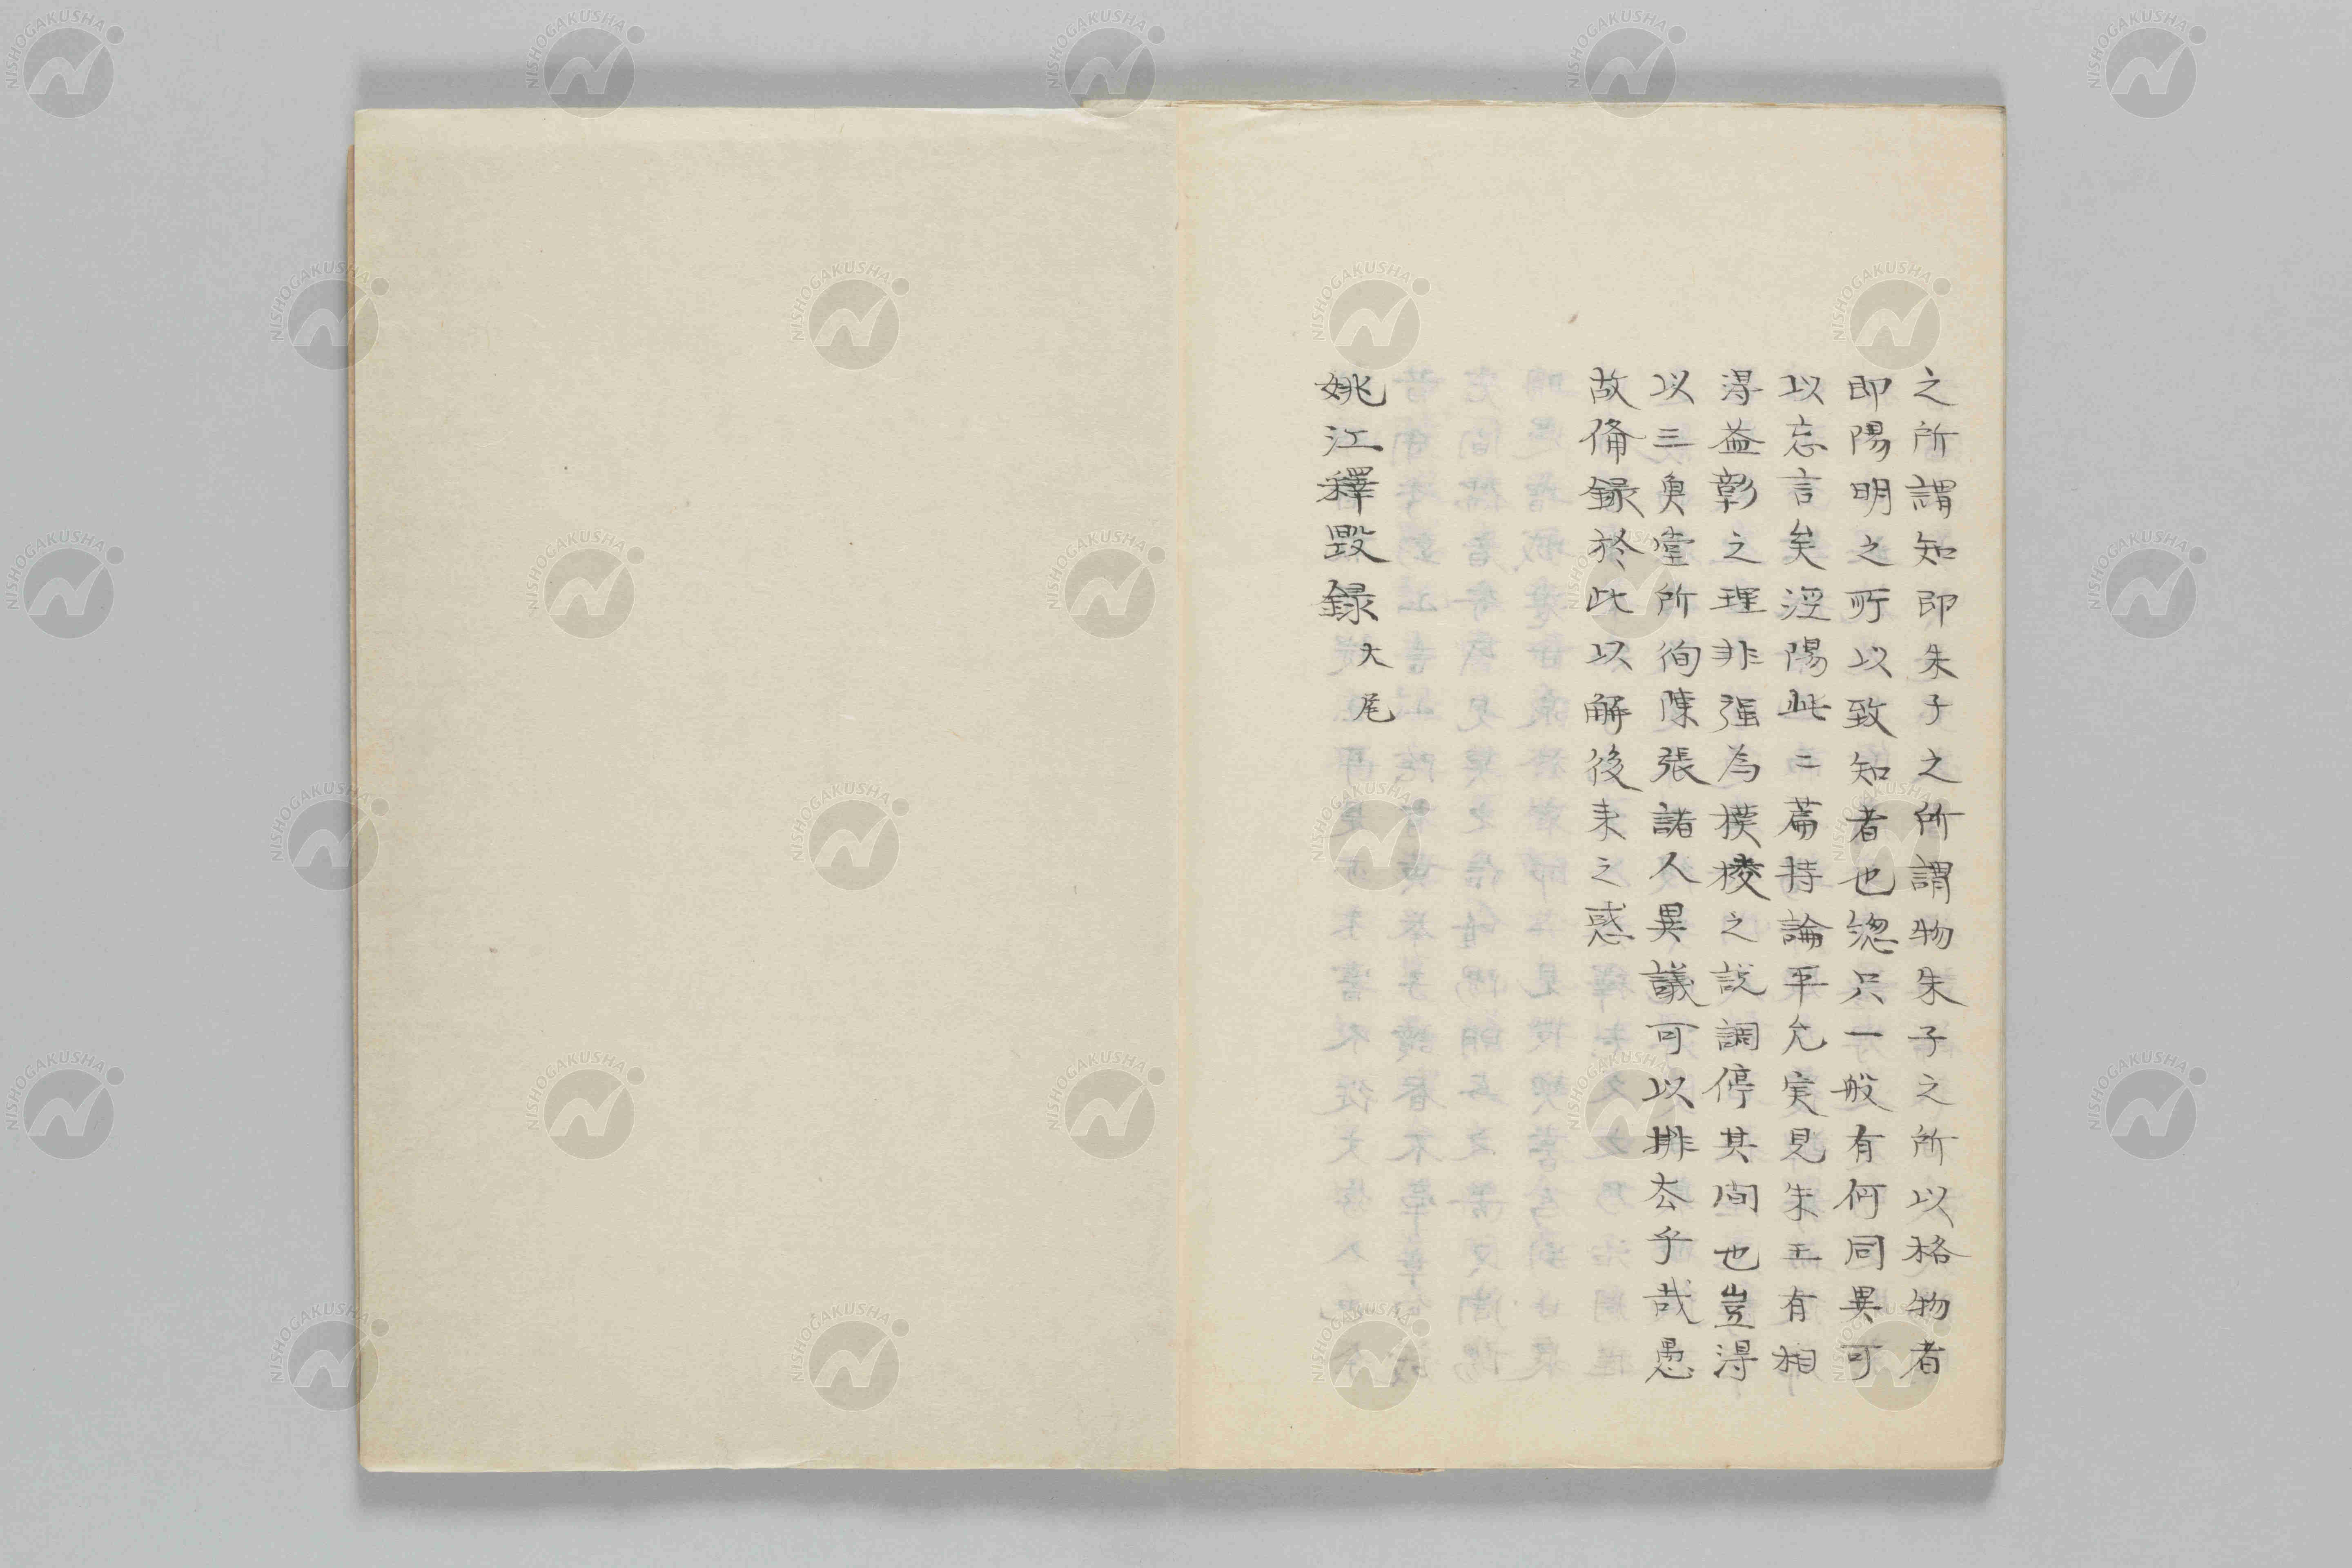 之所謂知即朱子之所謂物朱子之所以格物者
即陽明之所以致知者也總只一般有何同異可
以忘言矣涇陽此二篇持論平允実見朱王有相
得益彰之理非强為模稜之說調停其間也豈得
以三魚堂所徇陳張諸人異議可以排厺乎哉愚
故俻録於此以解後来之惑
姚江釋毀録大尾
NISHOGAKUSHA